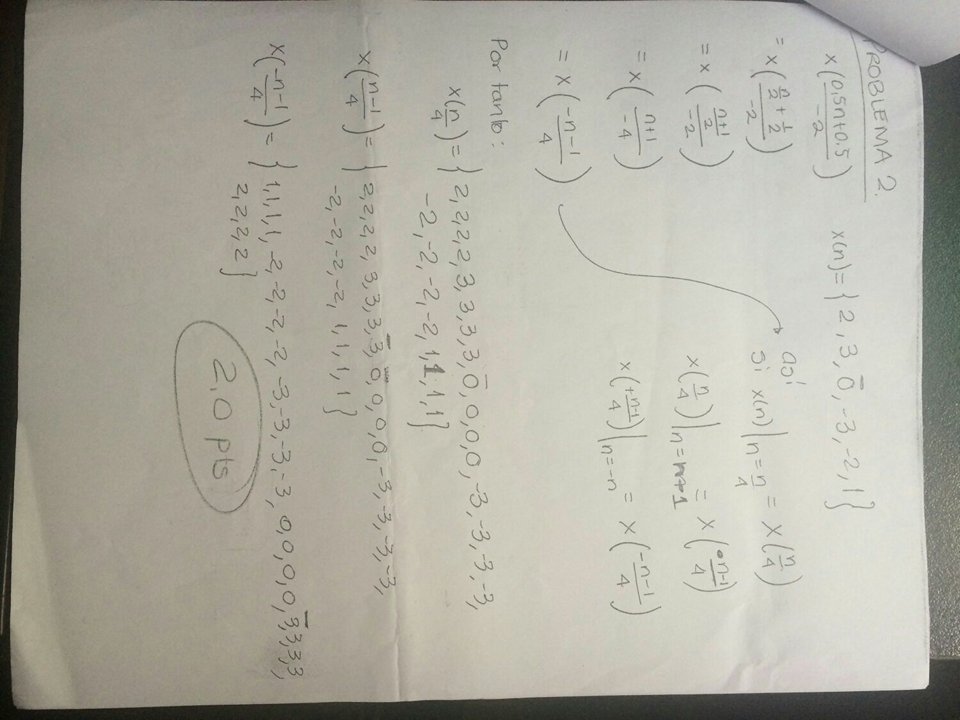 PROBLEMA 2.
x(n)={2,3,0̄,-3,-2,1}
x((0.5n+0.5)/-2)
= x((n/2 + 1/2)/-2)
= x(((n+1)/2)/-2)
= x((n+1)/-4)
= x((-n-1)/4)
así
si x(n)|n=n/4 = x(n/4)
x(n/4)|n=n-1 = x((n-1)/4)
x((+n-1)/4)|n=-n = x((-n-1)/4)
Por tanto:
x(n/4)={2,2,2,2,3,3,3,3,0̄,0,0,0,-3,-3,-3,-3,
-2,-2,-2,-2,1,1,1,1}
x((n-1)/4)={2,2,2,2,3,3,3,3̄,0,0,0,0,-3,-3,-3,-3,
-2,-2,-2,-2,1,1,1,1}
x((-n-1)/4)={1,1,1,1,-2,-2,-2,-2,-3,-3,-3,-3,0,0,0,0,3̄,3,3,3,
2,2,2,2}
2,0 pts